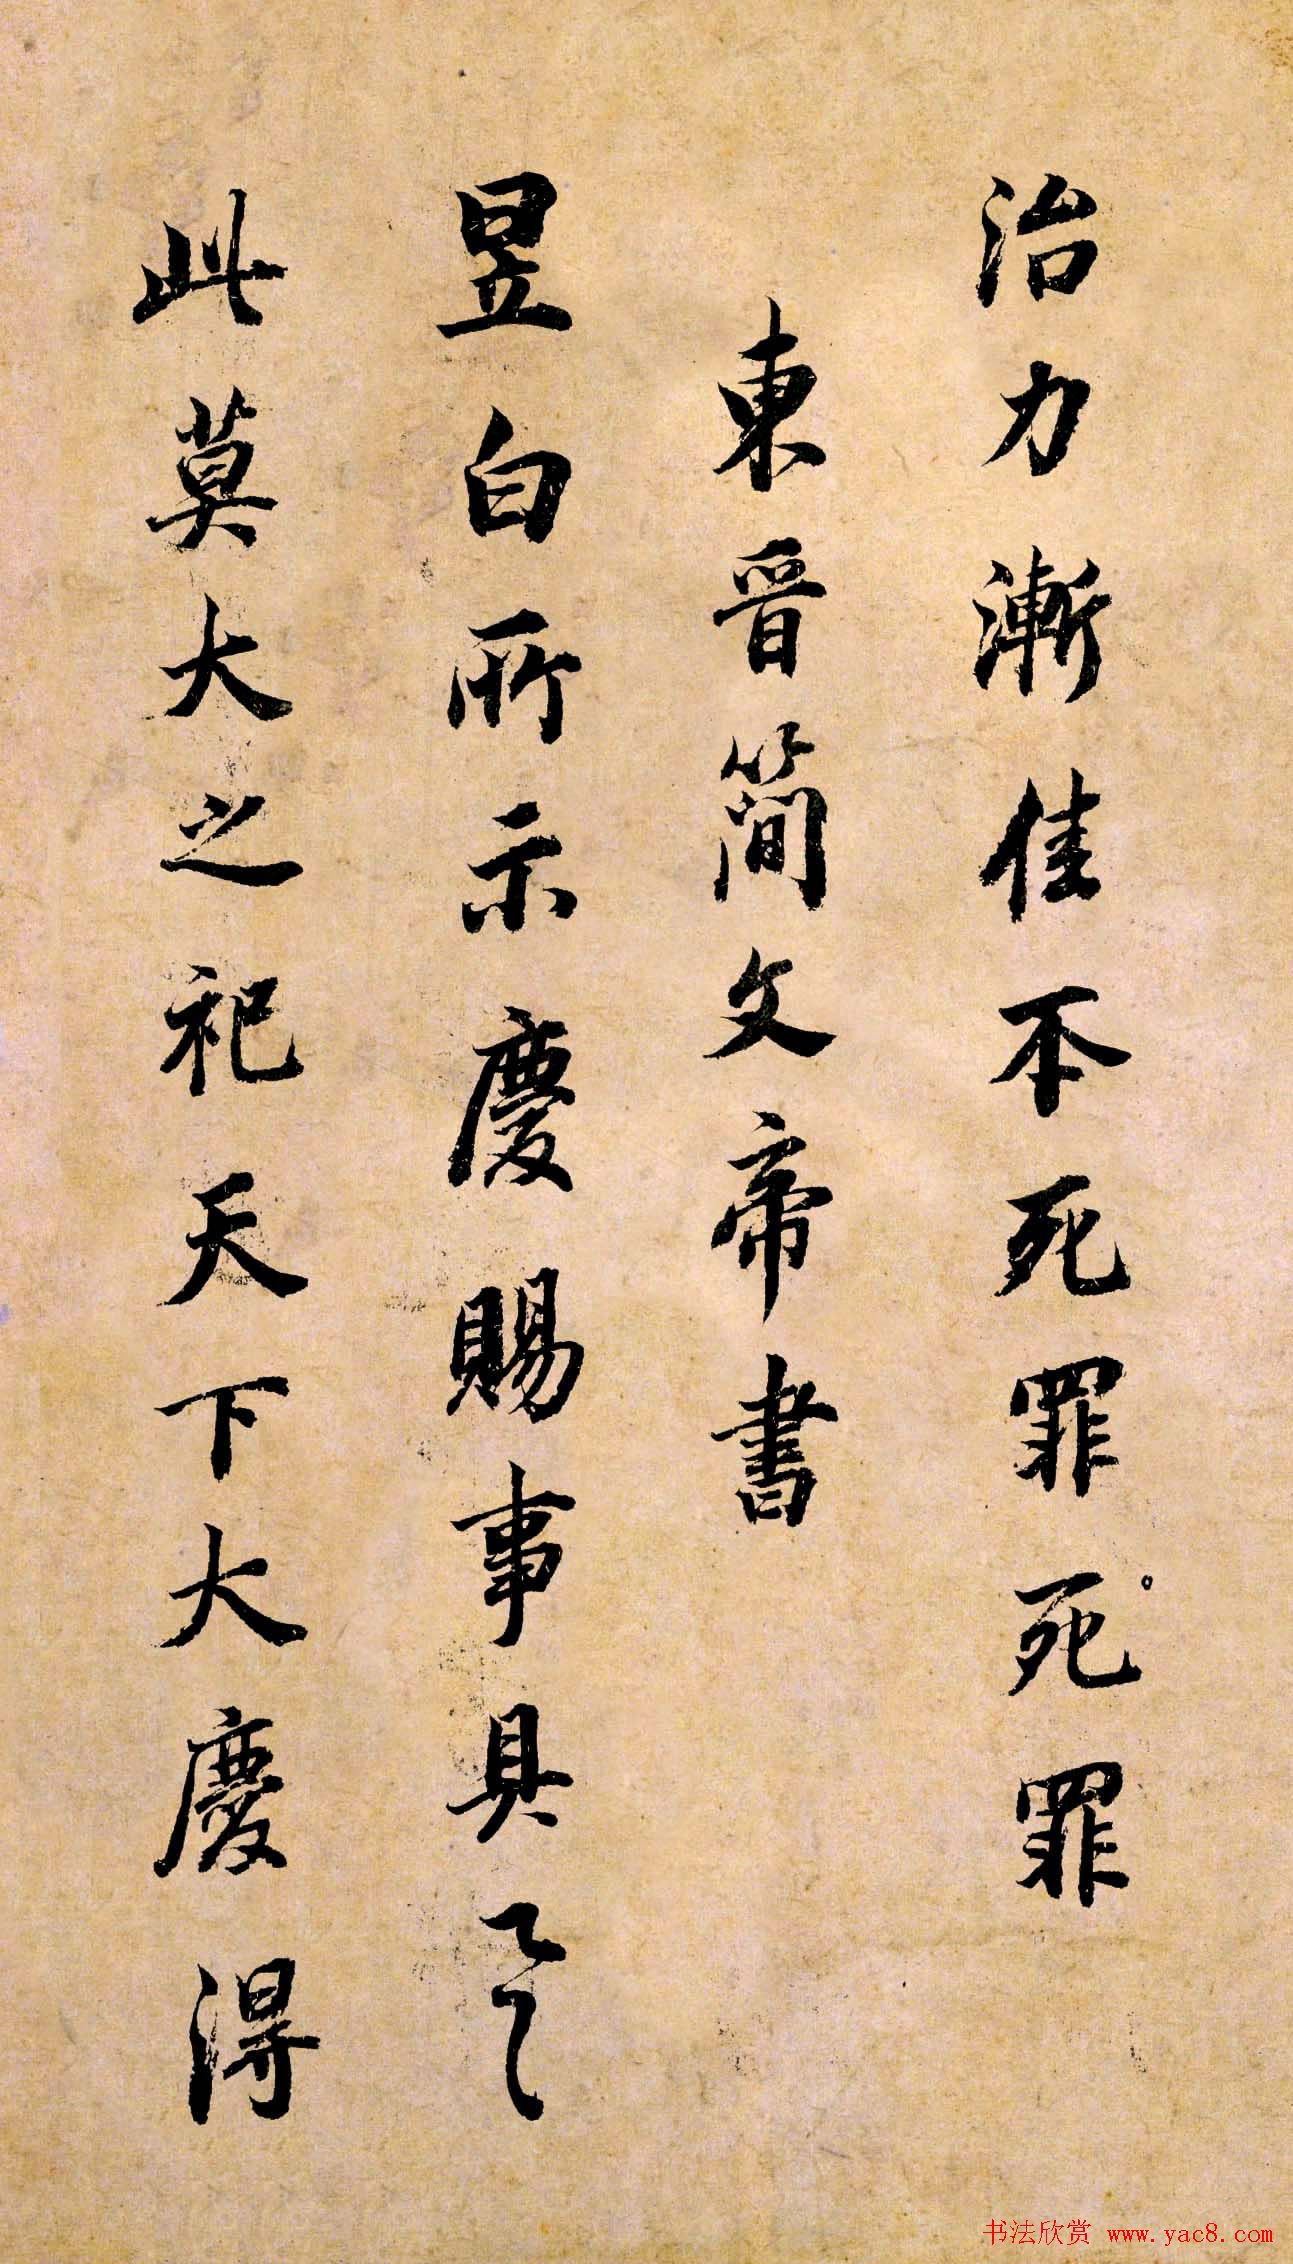 治力漸佳不死罪死罪
東晉簡文帝書
昱白所示慶賜事具之
此莫大之祀天下大慶得
书法欣赏 www.yac8.com